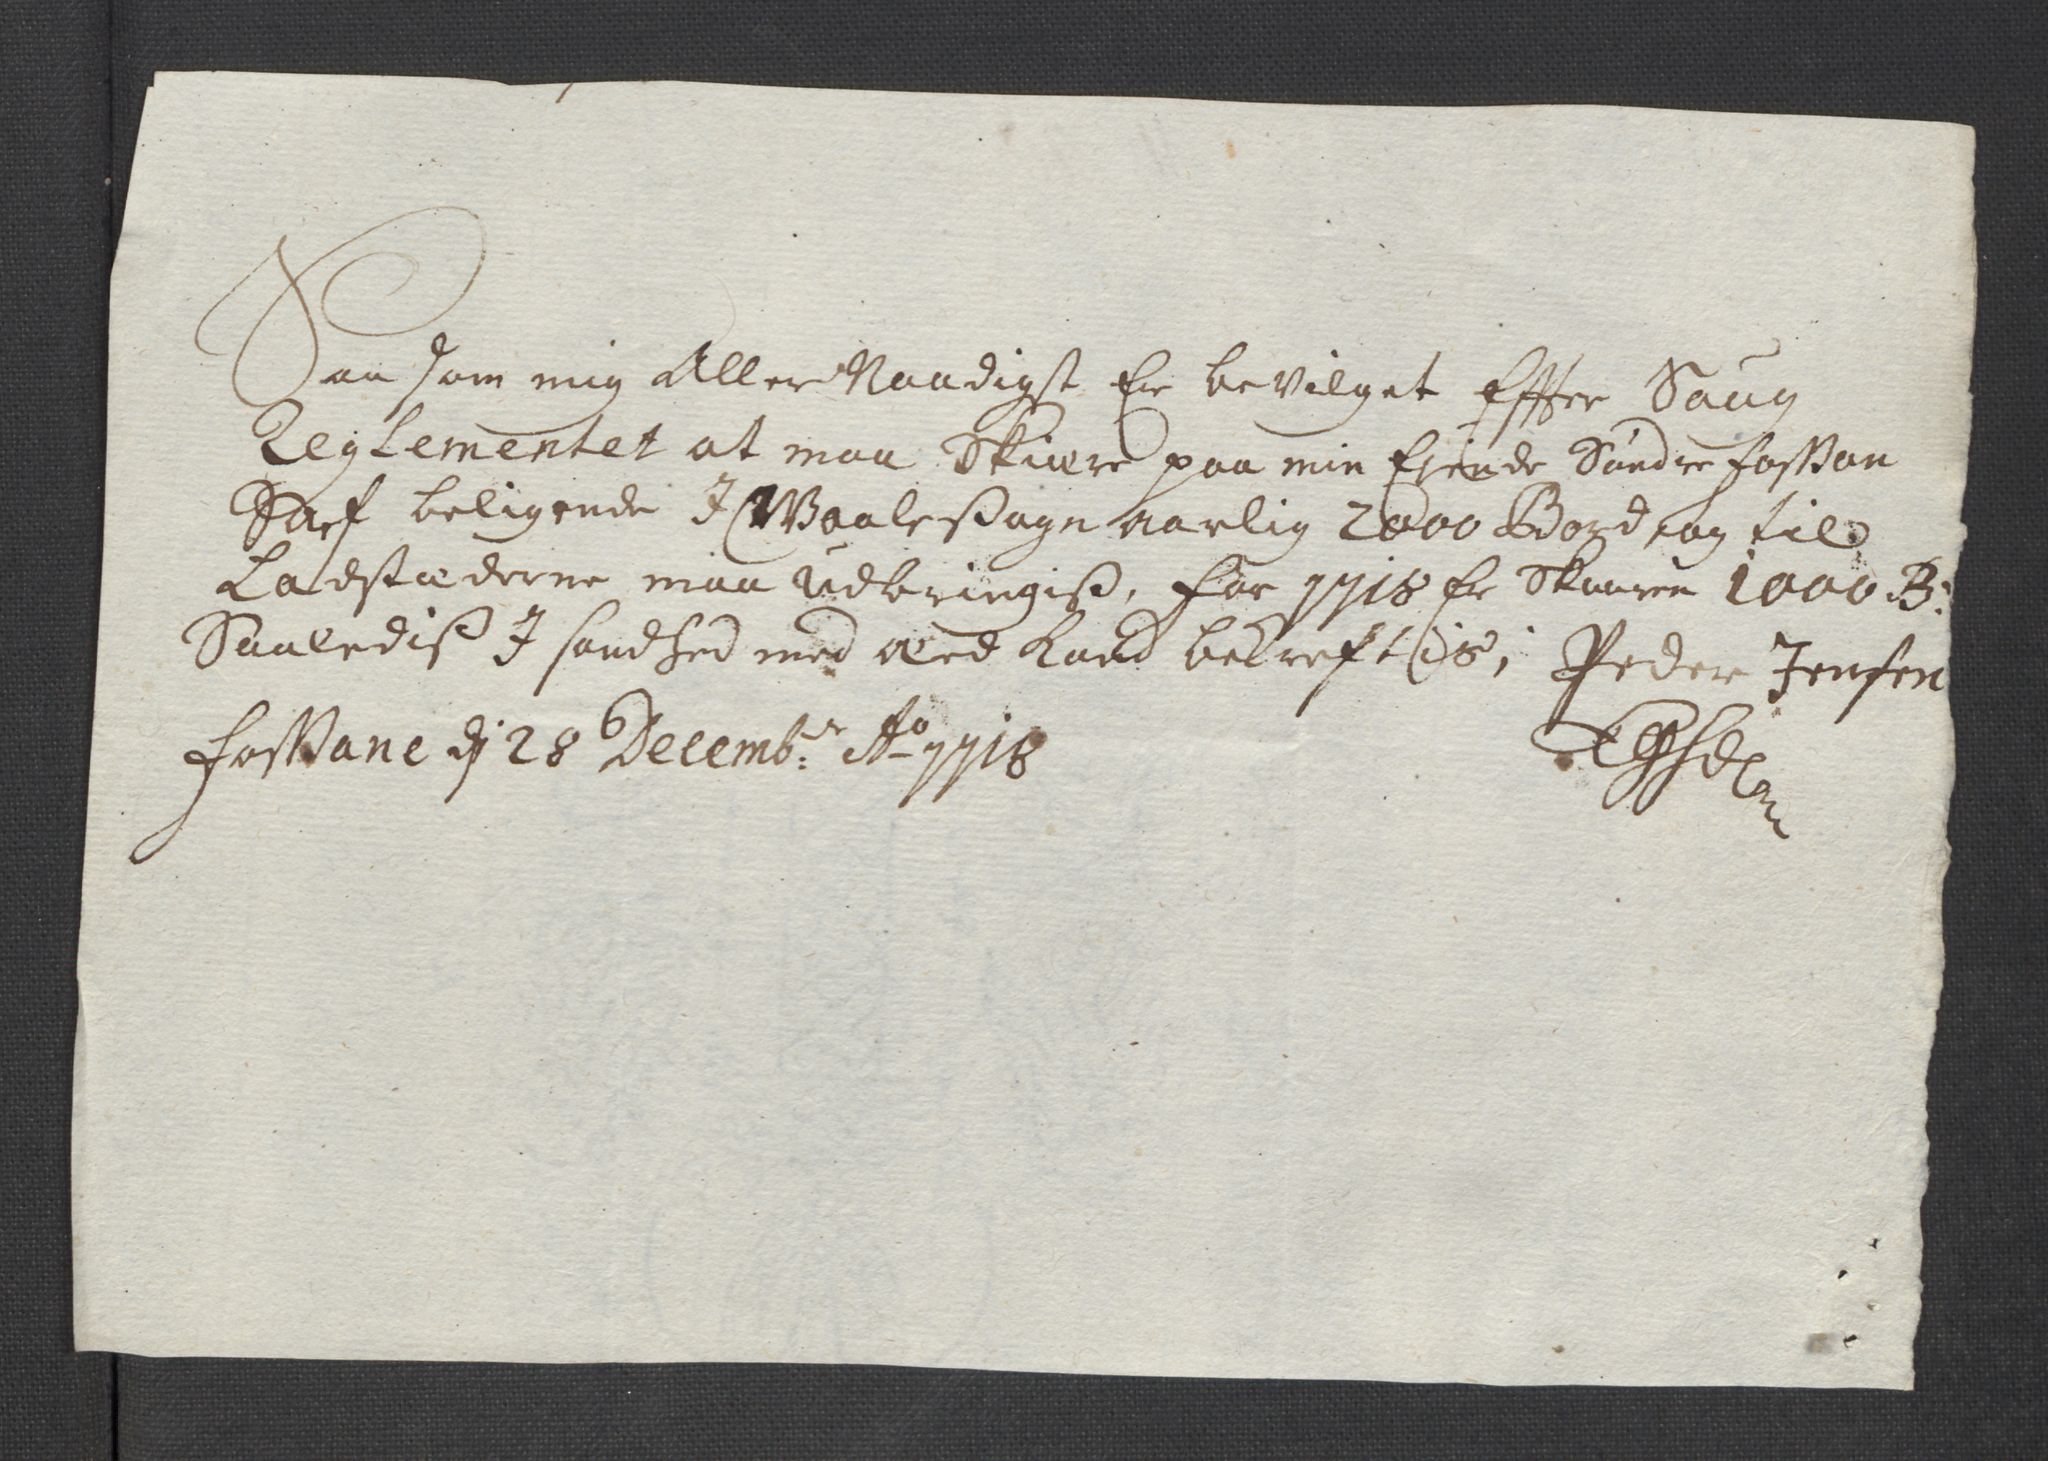 Saasom mig Aller Naadigst Er bevilget Effter Saug
Reglementet at maa Skiære paa min Eiende Søndre Fossan
Saug beligende J Waale Sogn aarlig 2000 Bord, og til
Ladstæderne maa Udbringiß, for 1718 Er Skaaren 1000 B:
Saalediß J sandhed med æed kand bekreftis, Peder Jensen
Fossane dj 28 Decembr: Ao 1718